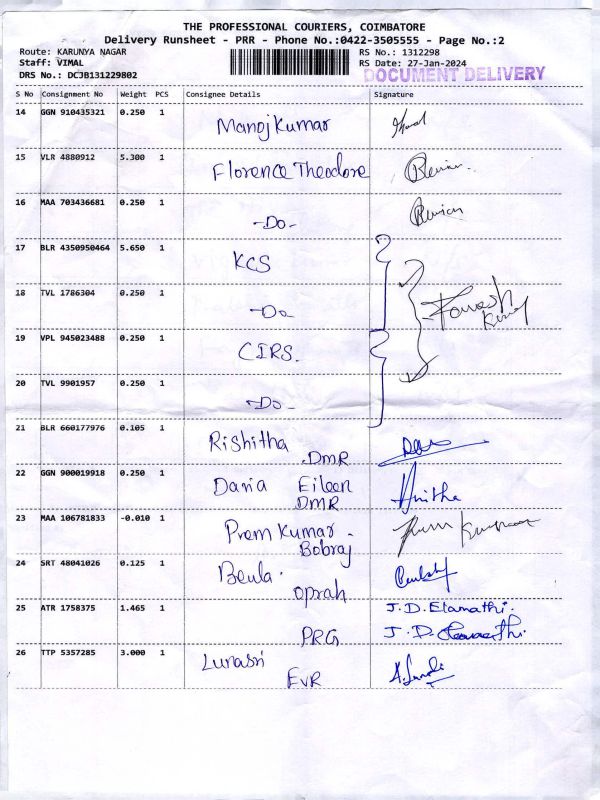 THE PROFESSIONAL COURIERS, COIMBATORE
Delivery Runsheet - PRR - Phone No.:0422-3505555 - Page No.:2
Route: KARUNYA NAGAR RS No.: 1312298
Staff: VIMAL RS Date: 27-Jan-2024
DRS No.: DCJB131229802 DOCUMENT DELIVERY
S No Consignment No Weight PCS Consignee Details Signature
14 GGN 910435321 0.250 1 Manoj Kumar
15 VLR 4880912 5.300 1 Florence Theodore
16 MAA 703436681 0.250 1 -Do-
17 BLR 4350950464 5.650 1 KCS
18 TVL 1786304 0.250 1 -Do-
19 VPL 945023488 0.250 1 CIRS.
20 TVL 9901957 0.250 1 -Do-
21 BLR 660177976 0.105 1 Rishitha
.DMR
22 GGN 900019918 0.250 1 Daria Eileen Anitha
DMR
23 MAA 106781833 -0.010 1 Prem Kumar - Prem Kumar
Bobraj
24 SRT 48041026 0.125 1 Beula.
oprah
25 ATR 1758375 1.465 1 J.D. Elamathi.
PRG J.D.
26 TTP 5357285 3.000 1 Lunasri
EVR